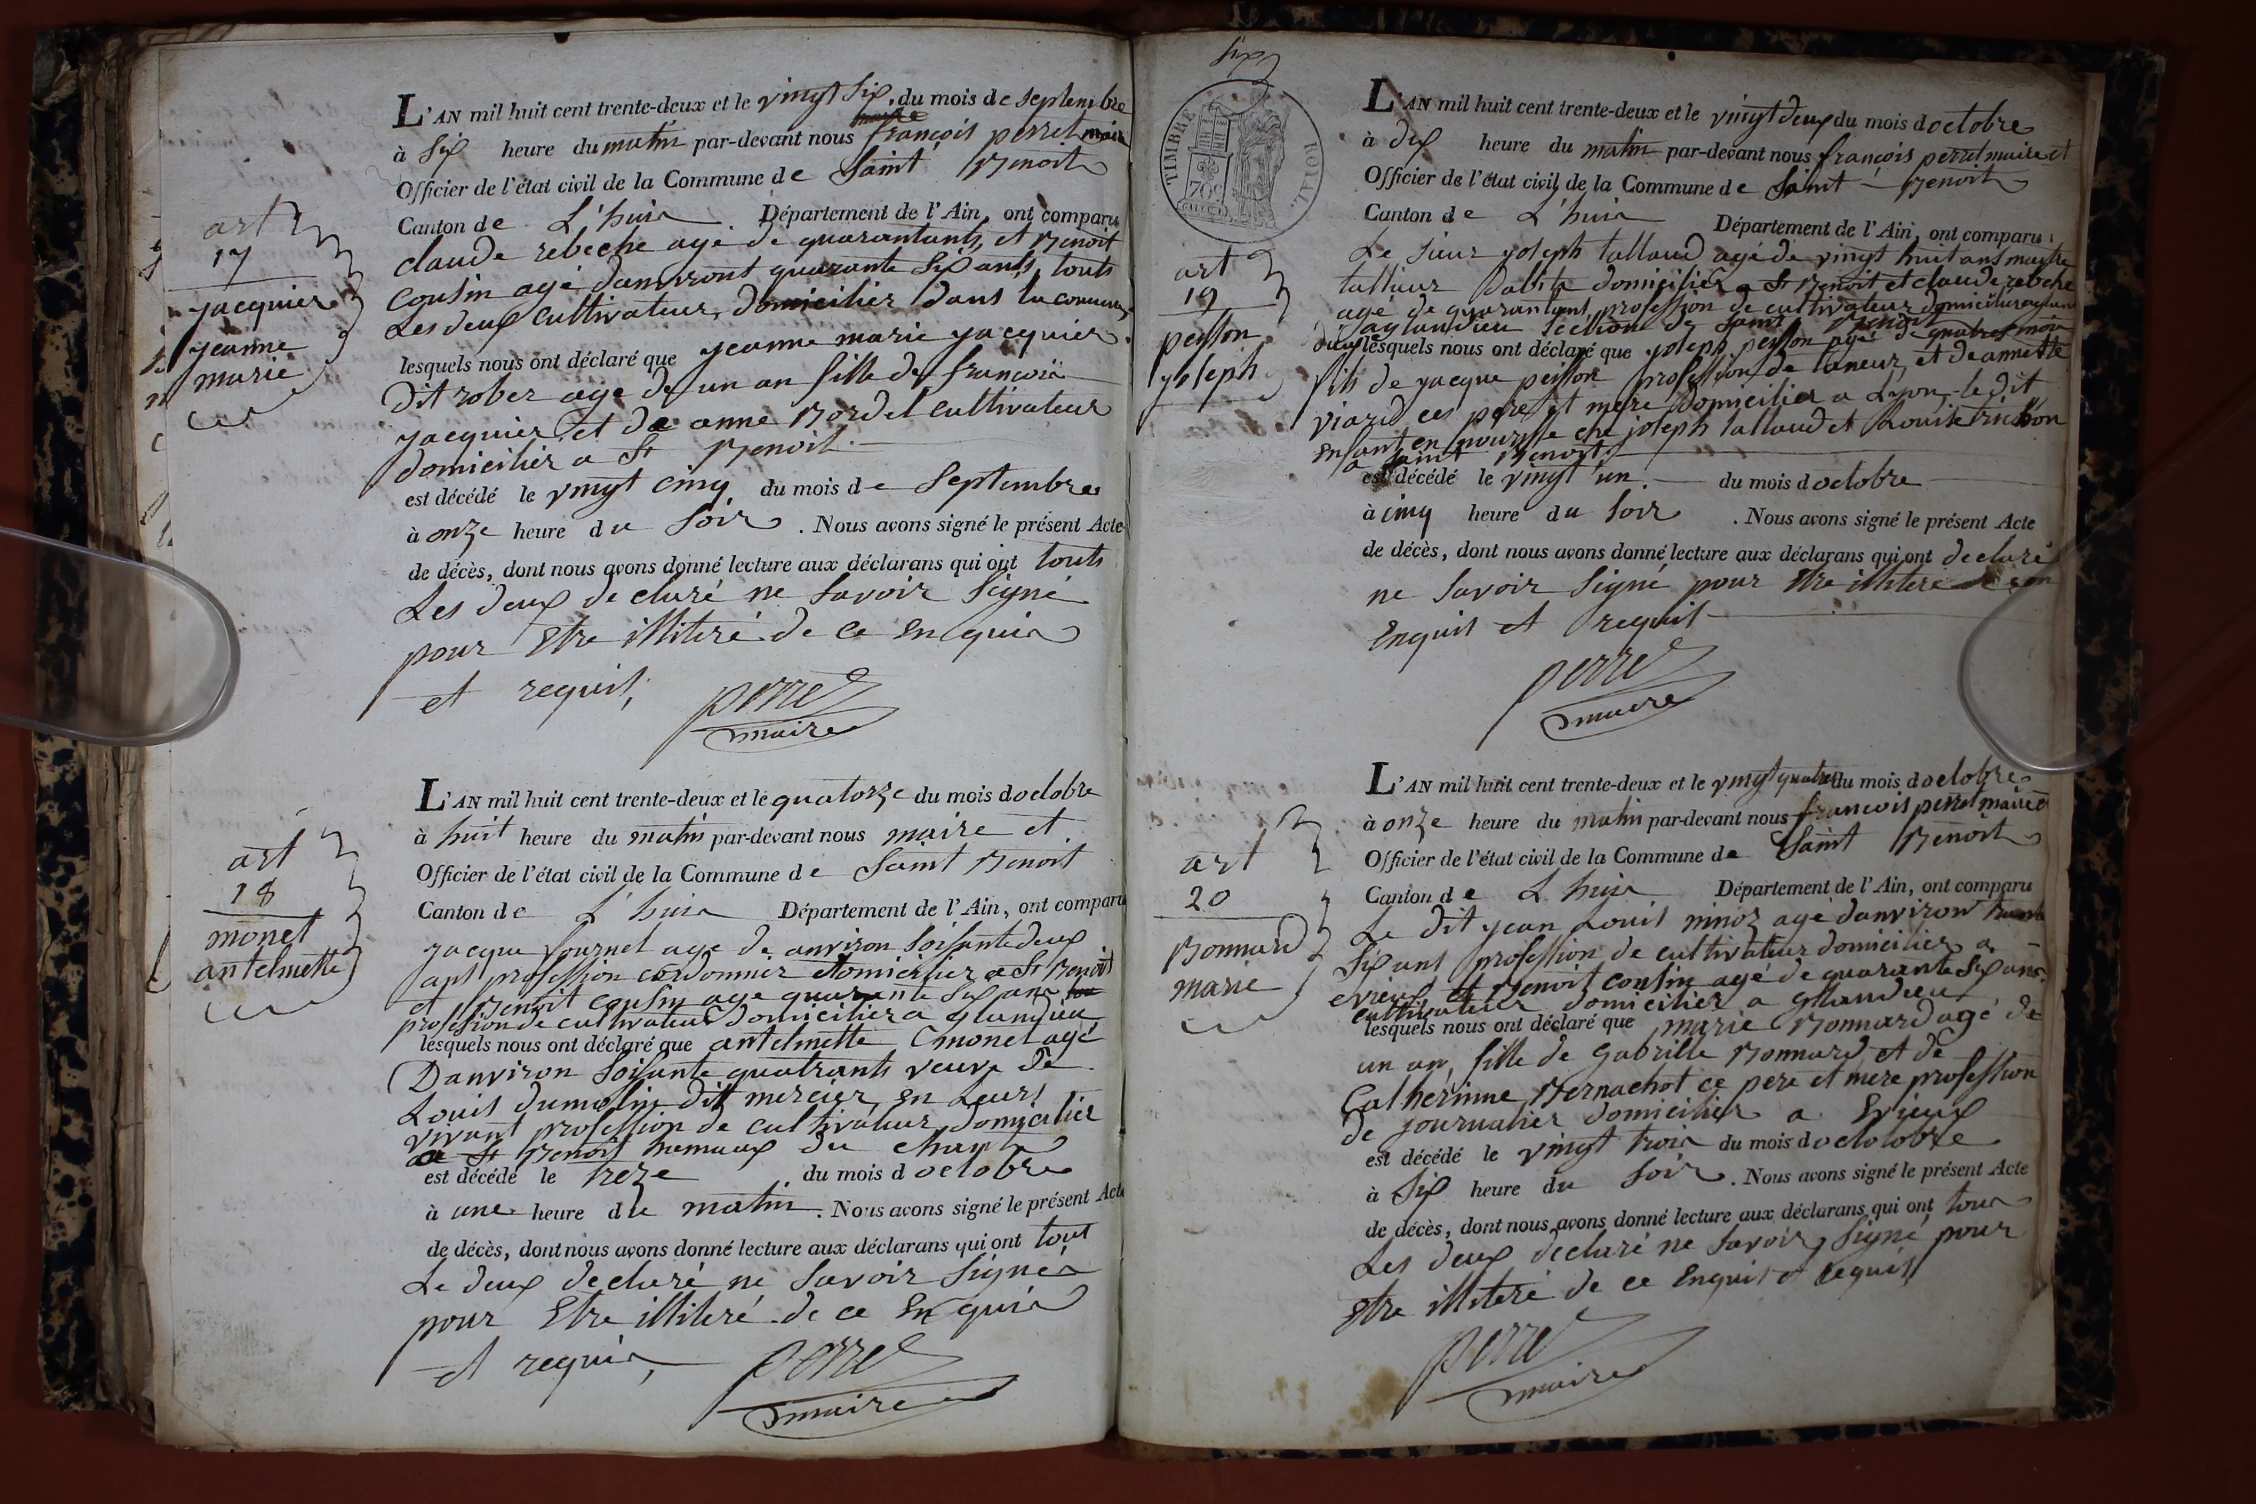 art
17
jacquier
jeanne
marie
L'AN mil huit cent trente-deux et le vingt six, du mois de septembre
à six heure du matin par-devant nous françois perret maire
Officier de l'état civil de la Commune de Saint Benoit
Canton de L'huis Département de l'Ain, ont comparu
claude rebeche agé de quarantants, et Benoit
Cousin agé danviront quarante six ants, touts
Les deux cultivateur, domicilier dans la commune
lesquels nous ont déclaré que jeanne marie jacquier
Dit rober agé de un an fille de françois
jacquier, et de anne Bordel cultivateur
domicilier a St Benoit
est décédé le vingt cinq du mois de Septembre
à onze heure du Soir. Nous avons signé le présent Acte
de décès, dont nous avons donné lecture aux déclarans qui ont touts
Les deux declaré ne Savoir Signé
pour Etre illiteré de ce Enquis
et requis,
perret
maire
art
18
monet
antelmette
L'AN mil huit cent trente-deux et le quatorze du mois doctobre
à huit heure du matin par-devant nous maire et
Officier de l'état civil de la Commune de Saint Benoit
Canton de L'huis Département de l'Ain, ont comparu
jacque fournet age de anviron Soisantedeux
ans profession cordonnier domicilier a St Benoit
et Benoit Cousin age quarante Six ans
profession de cultivateur Domicilier a glandieu
lesquels nous ont déclaré que antelmette monet agé
Danviron Soisante quatrants veuve De
Louis dumolin dit mercier, en Leurs
vivant profession de cultivateur, domicilier
a St Benoit hamaux du
est décédé le treze du mois d octobre
à une heure du matin. Nous avons signé le présent Acte
de décès, dont nous avons donné lecture aux déclarans qui ont tout
Le deux declaré ne Savoir Signer
pour Etre illiteré de ce En quis
et requis,
perret
maire
six
TIMBRE ROYAL
70c
art
19
peisson
joseph
L'AN mil huit cent trente-deux et le vingtdeux du mois doctobre
à dix heure du matin par-devant nous françois perret maire et
Officier de l'état civil de la Commune de Saint Benoit
Canton de L'huis Département de l'Ain, ont comparu
Le Sieur joseph tallaud agé de vingt huit ans maytre
tallieur Dabit domicilier a St Benoit et claude rebeche
agé de quarantant, profession de cultivateur domicilier
a glandieu Section de Saint Benoit
lesquels nous ont déclaré que joseph peisson agé de quatres mois
fils de jacque peisson profession de taneur, et de annette
viard ces pere et mere Domicilier a Lyon, le dit
Enfant en nourisse che joseph tallaud et Louise
a Saint Benoit
est décédé le vingt un du mois doctobre
à cinq heure du Soir. Nous avons signé le présent Acte
de décès, dont nous avons donné lecture aux déclarans qui ont declaré
ne Savoir Signé pour Etre illiteré de ce
Enquis et requis
perret
maire
art
20
Bonnard
marie
L'AN mil huit cent trente-deux et le vingtquatre du mois doctobre
à onze heure du matin par-devant nous francois perret maire et
Officier de l'état civil de la Commune de Saint Benoit
Canton de L'huis Département de l'Ain, ont comparu
Le dit jean Louis ninoz agé danviron trente
Six ans profession de cultivateur domicilier a
evieux et Benoit Cousin agé de quarante Six ans
cultivateur domicilier a glandieu
lesquels nous ont déclaré que marie Bonnard agé de
un an, fille de Gabrille Bonnard et de
Catherinne Bernachot ce pere et mere profession
de journalier domicilier a Evieux
est décédé le vingt trois du mois doctobre
à Six heure du Soir. Nous avons signé le présent Acte
de décès, dont nous avons donné lecture aux déclarans qui ont tous
Les deux declaré ne Savoir, Signé pour
Etre illiteré de ce Enquis et requis
perret
maire